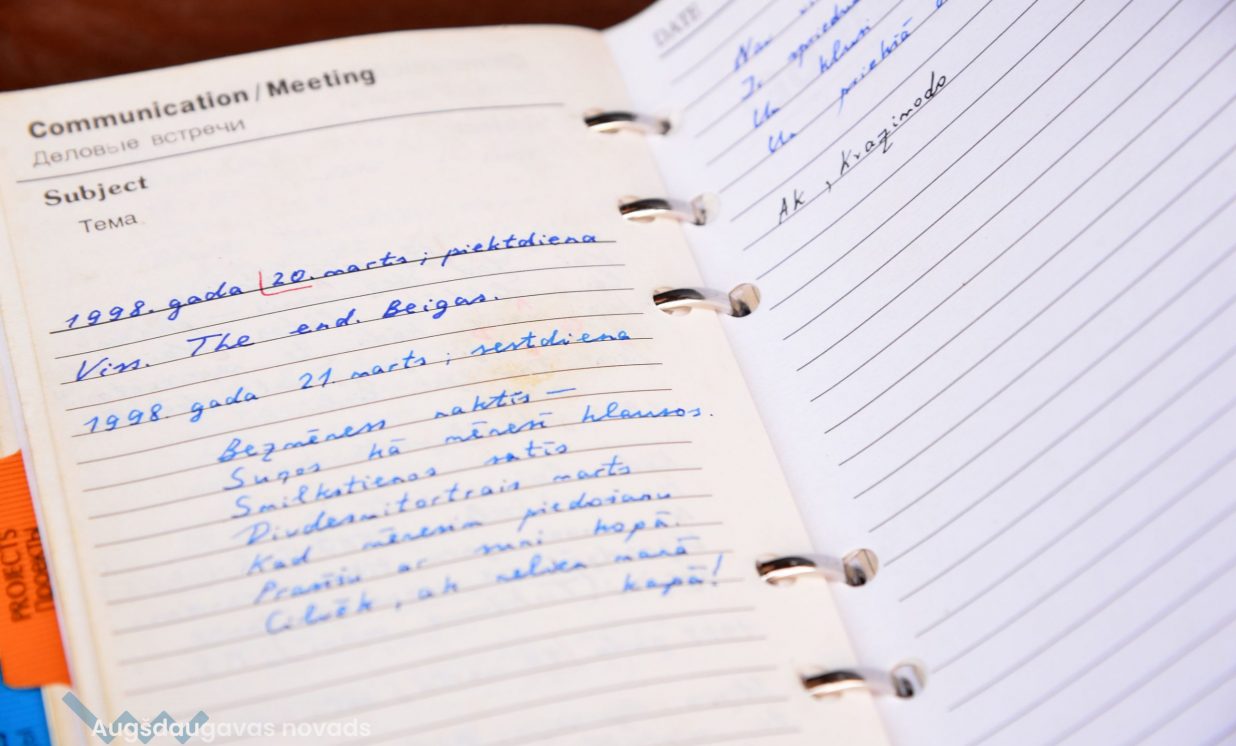 Communication / Meeting
Деловые встречи
Subject
Тема
1998. gada 20. marts ; piektdiena
Viss. The end. Beigas.
1998. gada 21. marts ; sestdiena
Bezmēness naktīs —
Suņos kā mēnesī klausos.
Smilkstienos satīs
Divdesmitotrais marts
Kad mēnesim piedošanu
Prasīšu ar suni kopā.
Cilvēk, ak nelien manā
kapā!
DATE
Un klusi
Un priekšā
Ak , Kvazimodo
PROJECTS
ПРОЕКТЫ
Augšdaugavas novads